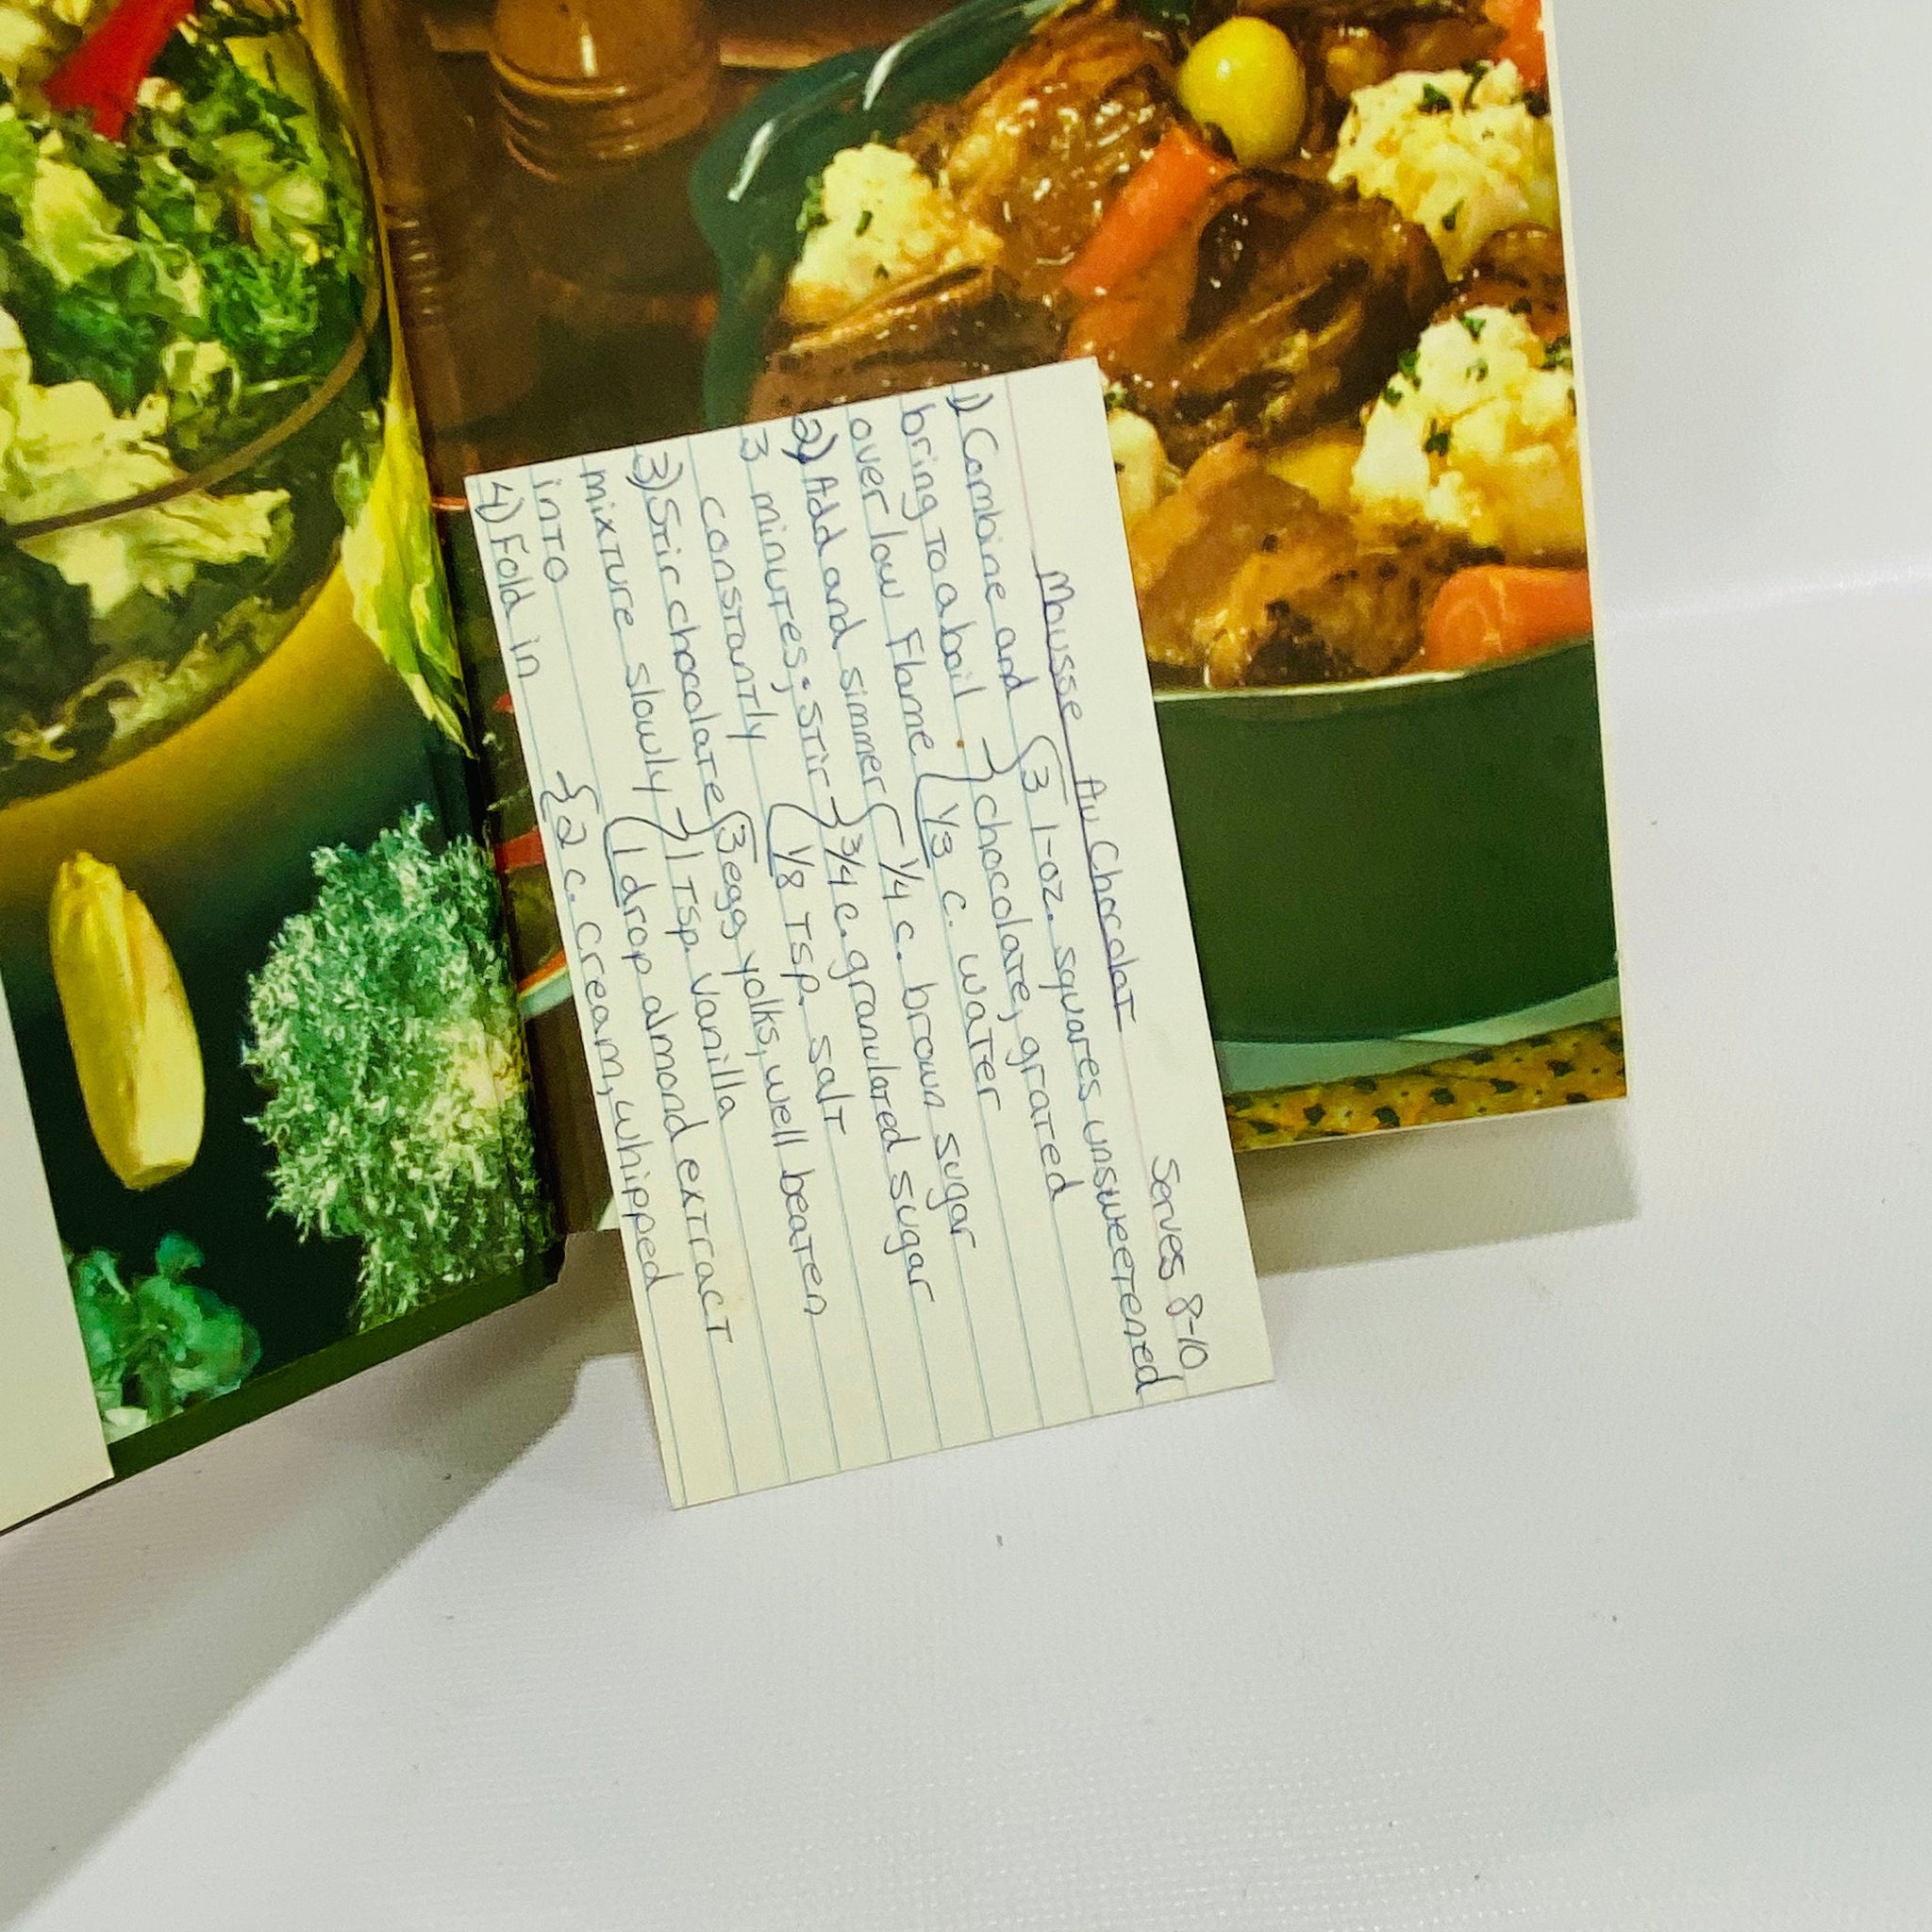 Mousse Au Chocolat Serves 8-10
1) Combine and { 3 1-oz. squares unsweetened
bring to a boil } chocolate, grated
over low flame { 1/3 c. water
2) Add and simmer { 1/4 c. brown sugar
3 minutes; stir } 3/4 c. granulated sugar
constantly { 1/8 tsp. salt
3) Stir chocolate { 3 egg yolks, well beaten
mixture slowly } 1 tsp. vanilla
into { 1 drop almond extract
4) Fold in { 2 c. cream, whipped